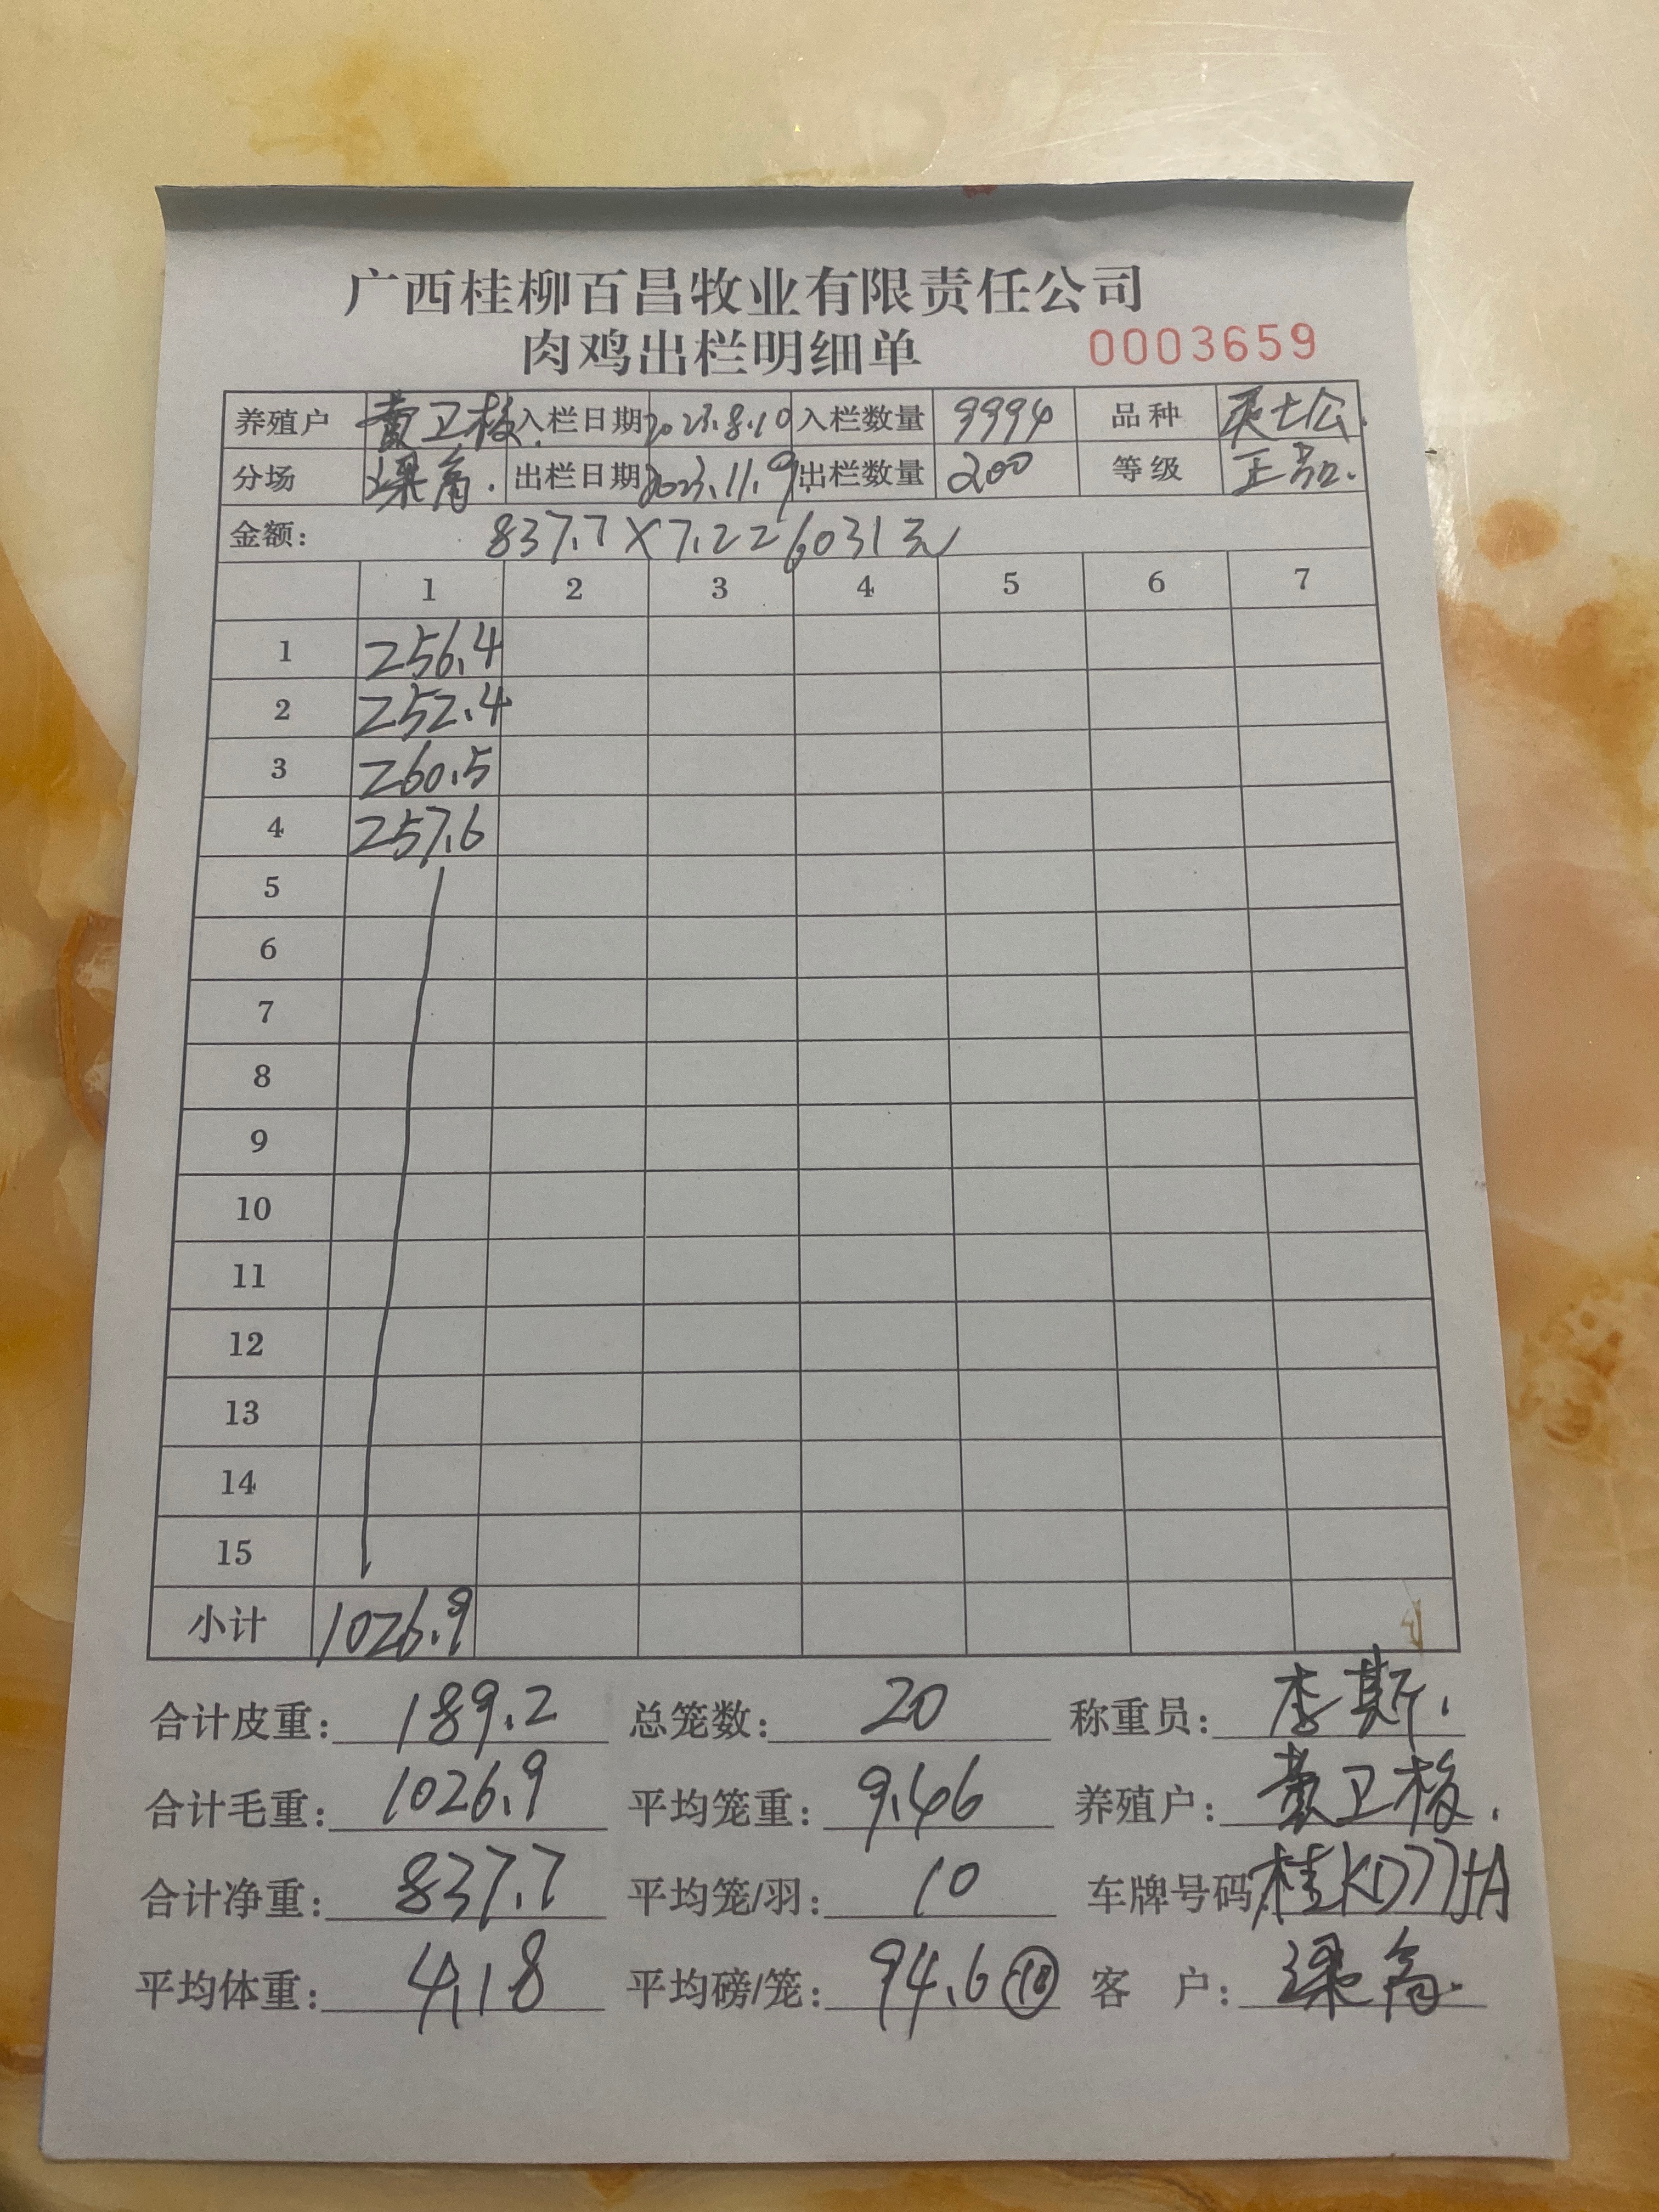 广西桂柳百昌牧业有限责任公司
肉鸡出栏明细单 0003659
养殖户 黄卫梭 入栏日期 2023.8.10 入栏数量 9994 品种
分场 梁高. 出栏日期 2023.11.9 出栏数量 200 等级 正品.
金额: 837.7×7.2 26031元
1 2 3 4 5 6 7
1 256.4
2 252.4
3 260.5
4 257.6
5
6
7
8
9
10
11
12
13
14
15
小计 1026.9
合计皮重: 189.2 总笼数: 20 称重员: 李斯.
合计毛重: 1026.9 平均笼重: 9.46 养殖户: 黄卫梭.
合计净重: 837.7 平均笼/羽: 10 车牌号码
平均体重: 4.18 平均磅/笼: 94.6 客户: 梁高.